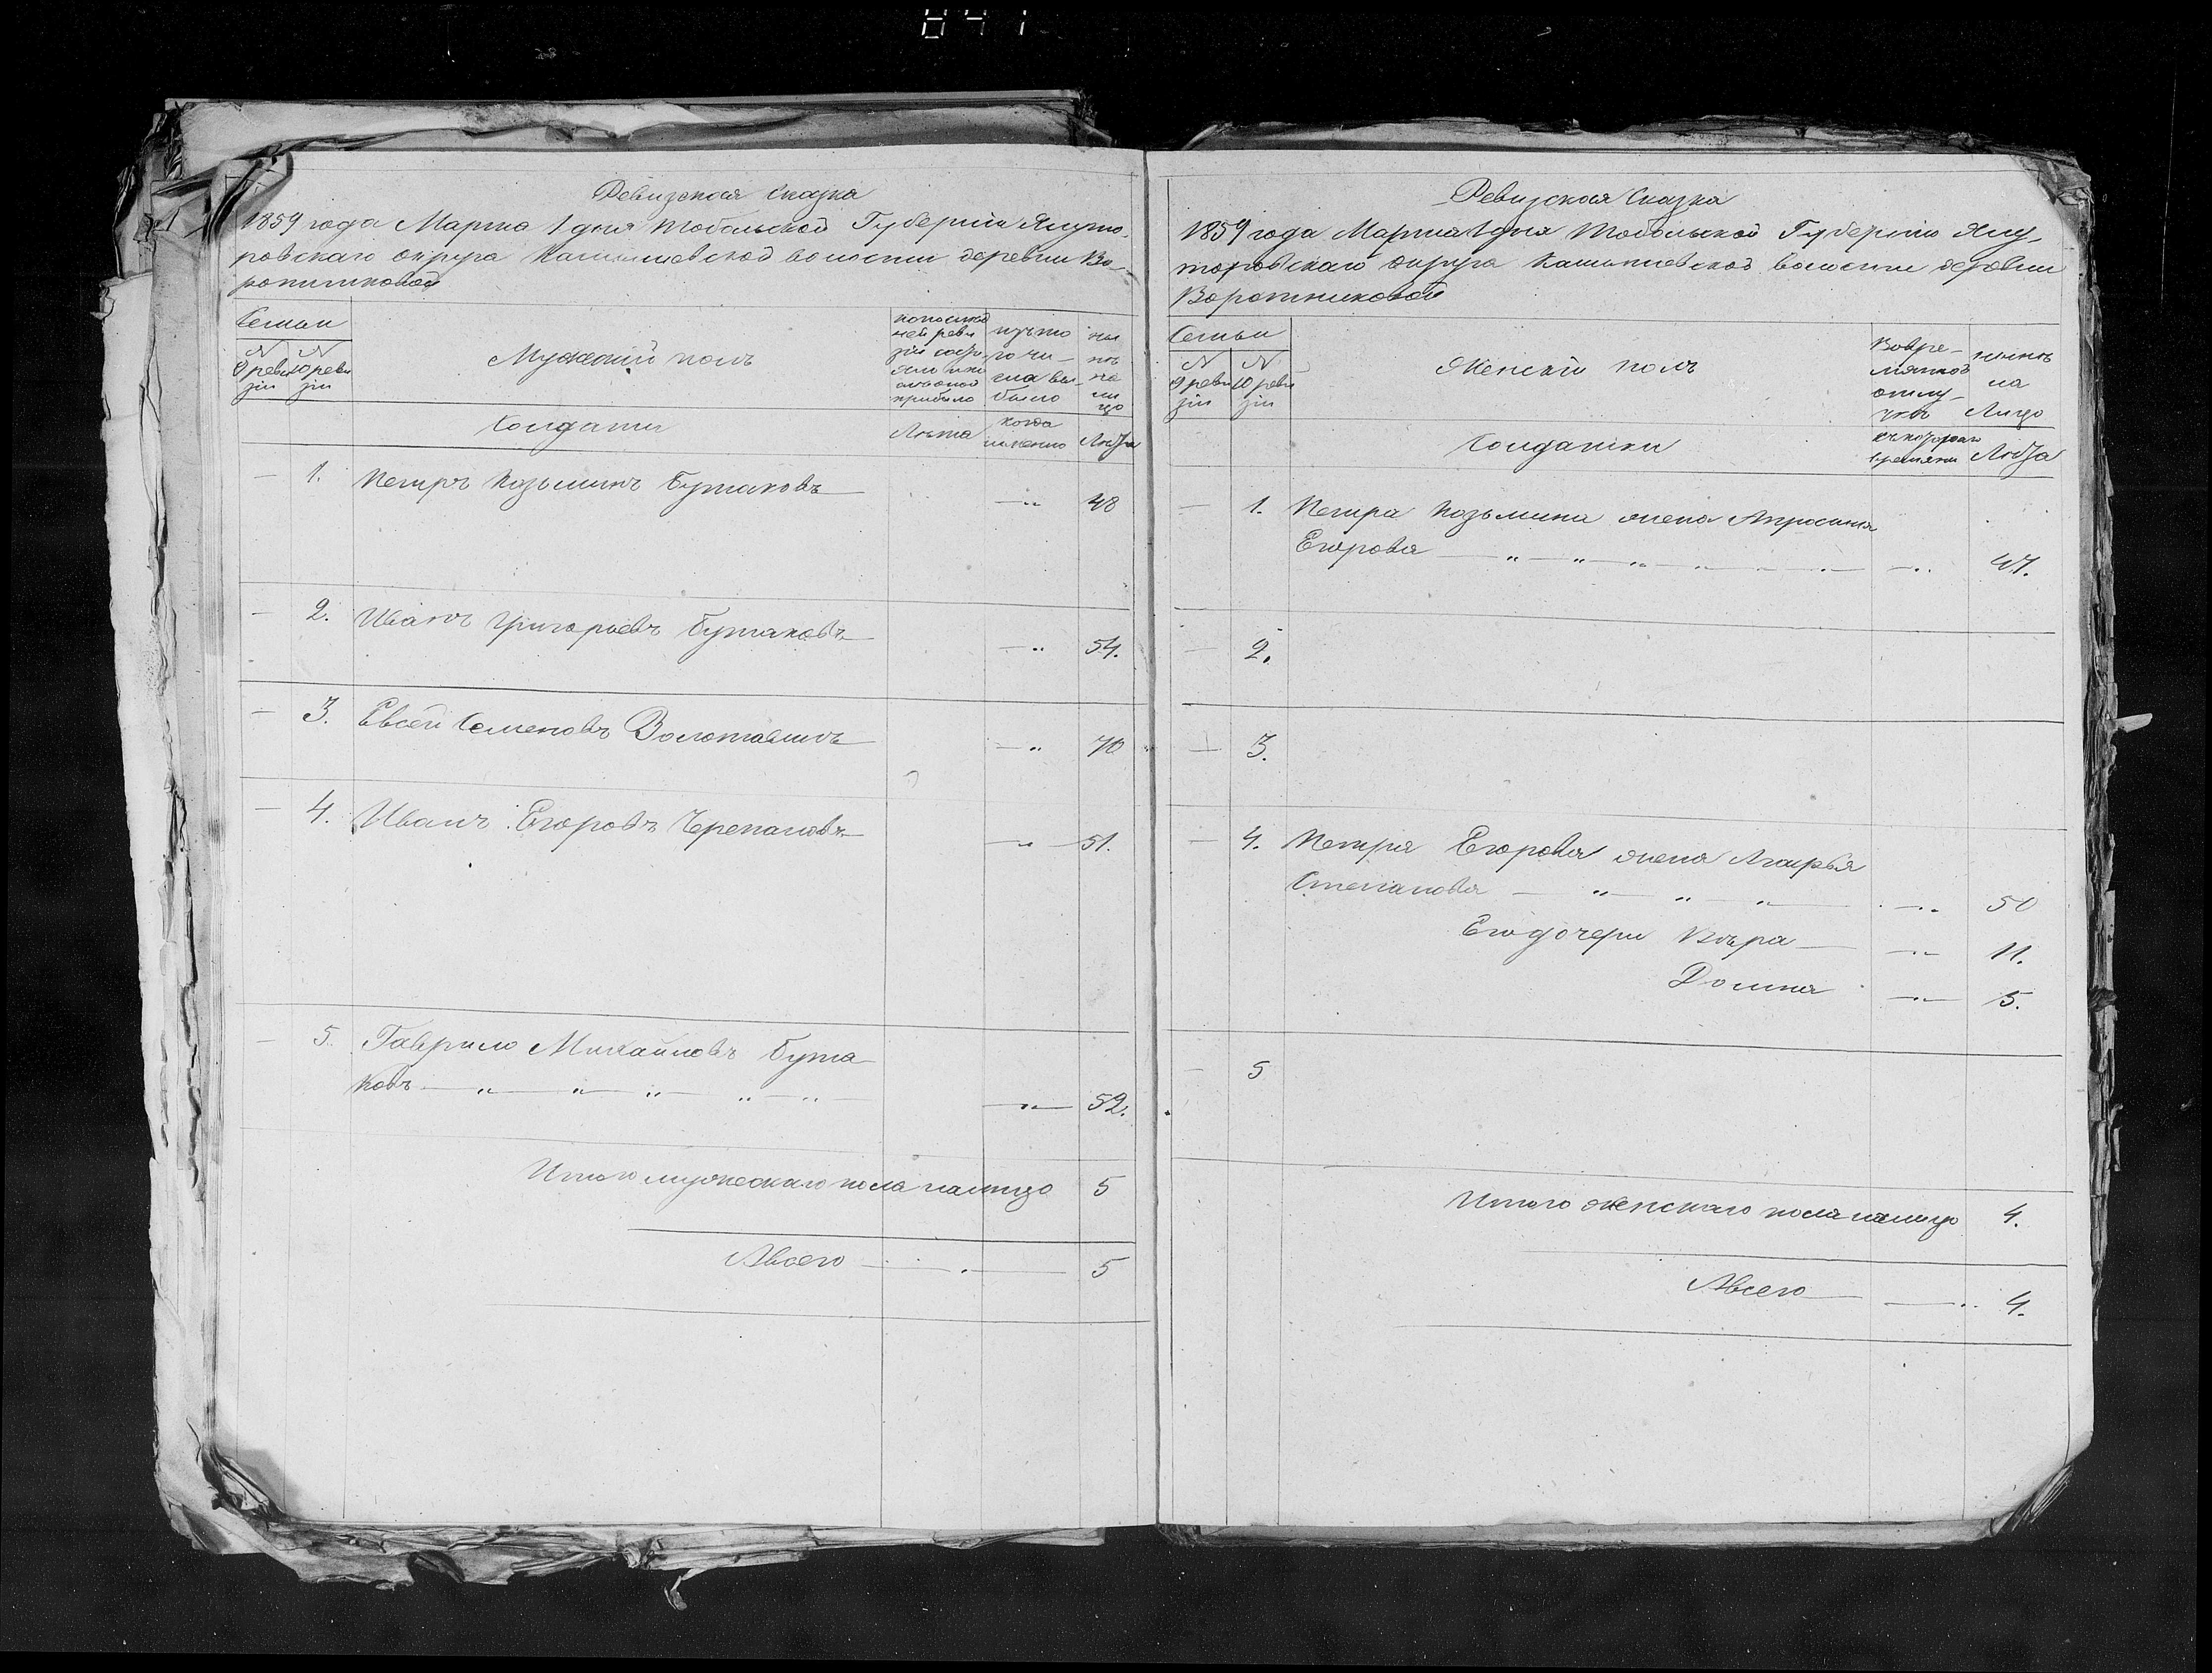 841
Ревизская Сказка
1859 года Марта 1 дня Тобольской Губернiи Ялуто-
ровскаго округа Кашышевской волости деревни Во-
ротниковой
Семьи
№ 9 ревизiи
№ 10 ревизiи
Мужескiй полъ
по последней ревизiи состояло или после оной прибыло
изъ того числа выбыло
ныне на лицо
Солдаты
Лѣта
когда именно
Лѣта
— 1. Петръ Козьминъ Бутаковъ — " 48
— 2. Иванъ Григорьевъ Бутаковъ — " 54.
— 3. Евсей Семеновъ — " 70
— 4. Иванъ Егоровъ Черепановъ — " — 51.
— 5. Гаврило Михайловъ Бута-
ковъ — " — " — " — " — " — — " — 52.
Итого мужескаго пола налицо 5
Авсего — . — 5
Ревизская Сказка
1859 года Марта 1 дня Тобольской Губернiи Ялу-
торовскаго округа волости деревни
Воротниковой
Семьи
№ 9 ревизiи
№ 10 ревизiи
Женскiй полъ
Вовремянной отлучкѣ
нынѣ на Лицо
Солдатки
съкотораго времяни
Лѣта
— 1. Петра Козьмина жена Апросинья
Егорова — " — " — " — " — " — — " 47.
— 2.
— 3.
— 4. Петра Егорова жена Агафья
Степанова — " — " — " — — " 50
Егодочери Вѣра — — " — 11.
Домна — " — 5.
— 5
Итого женскаго пола налицо 4.
Авсего — — " 4.